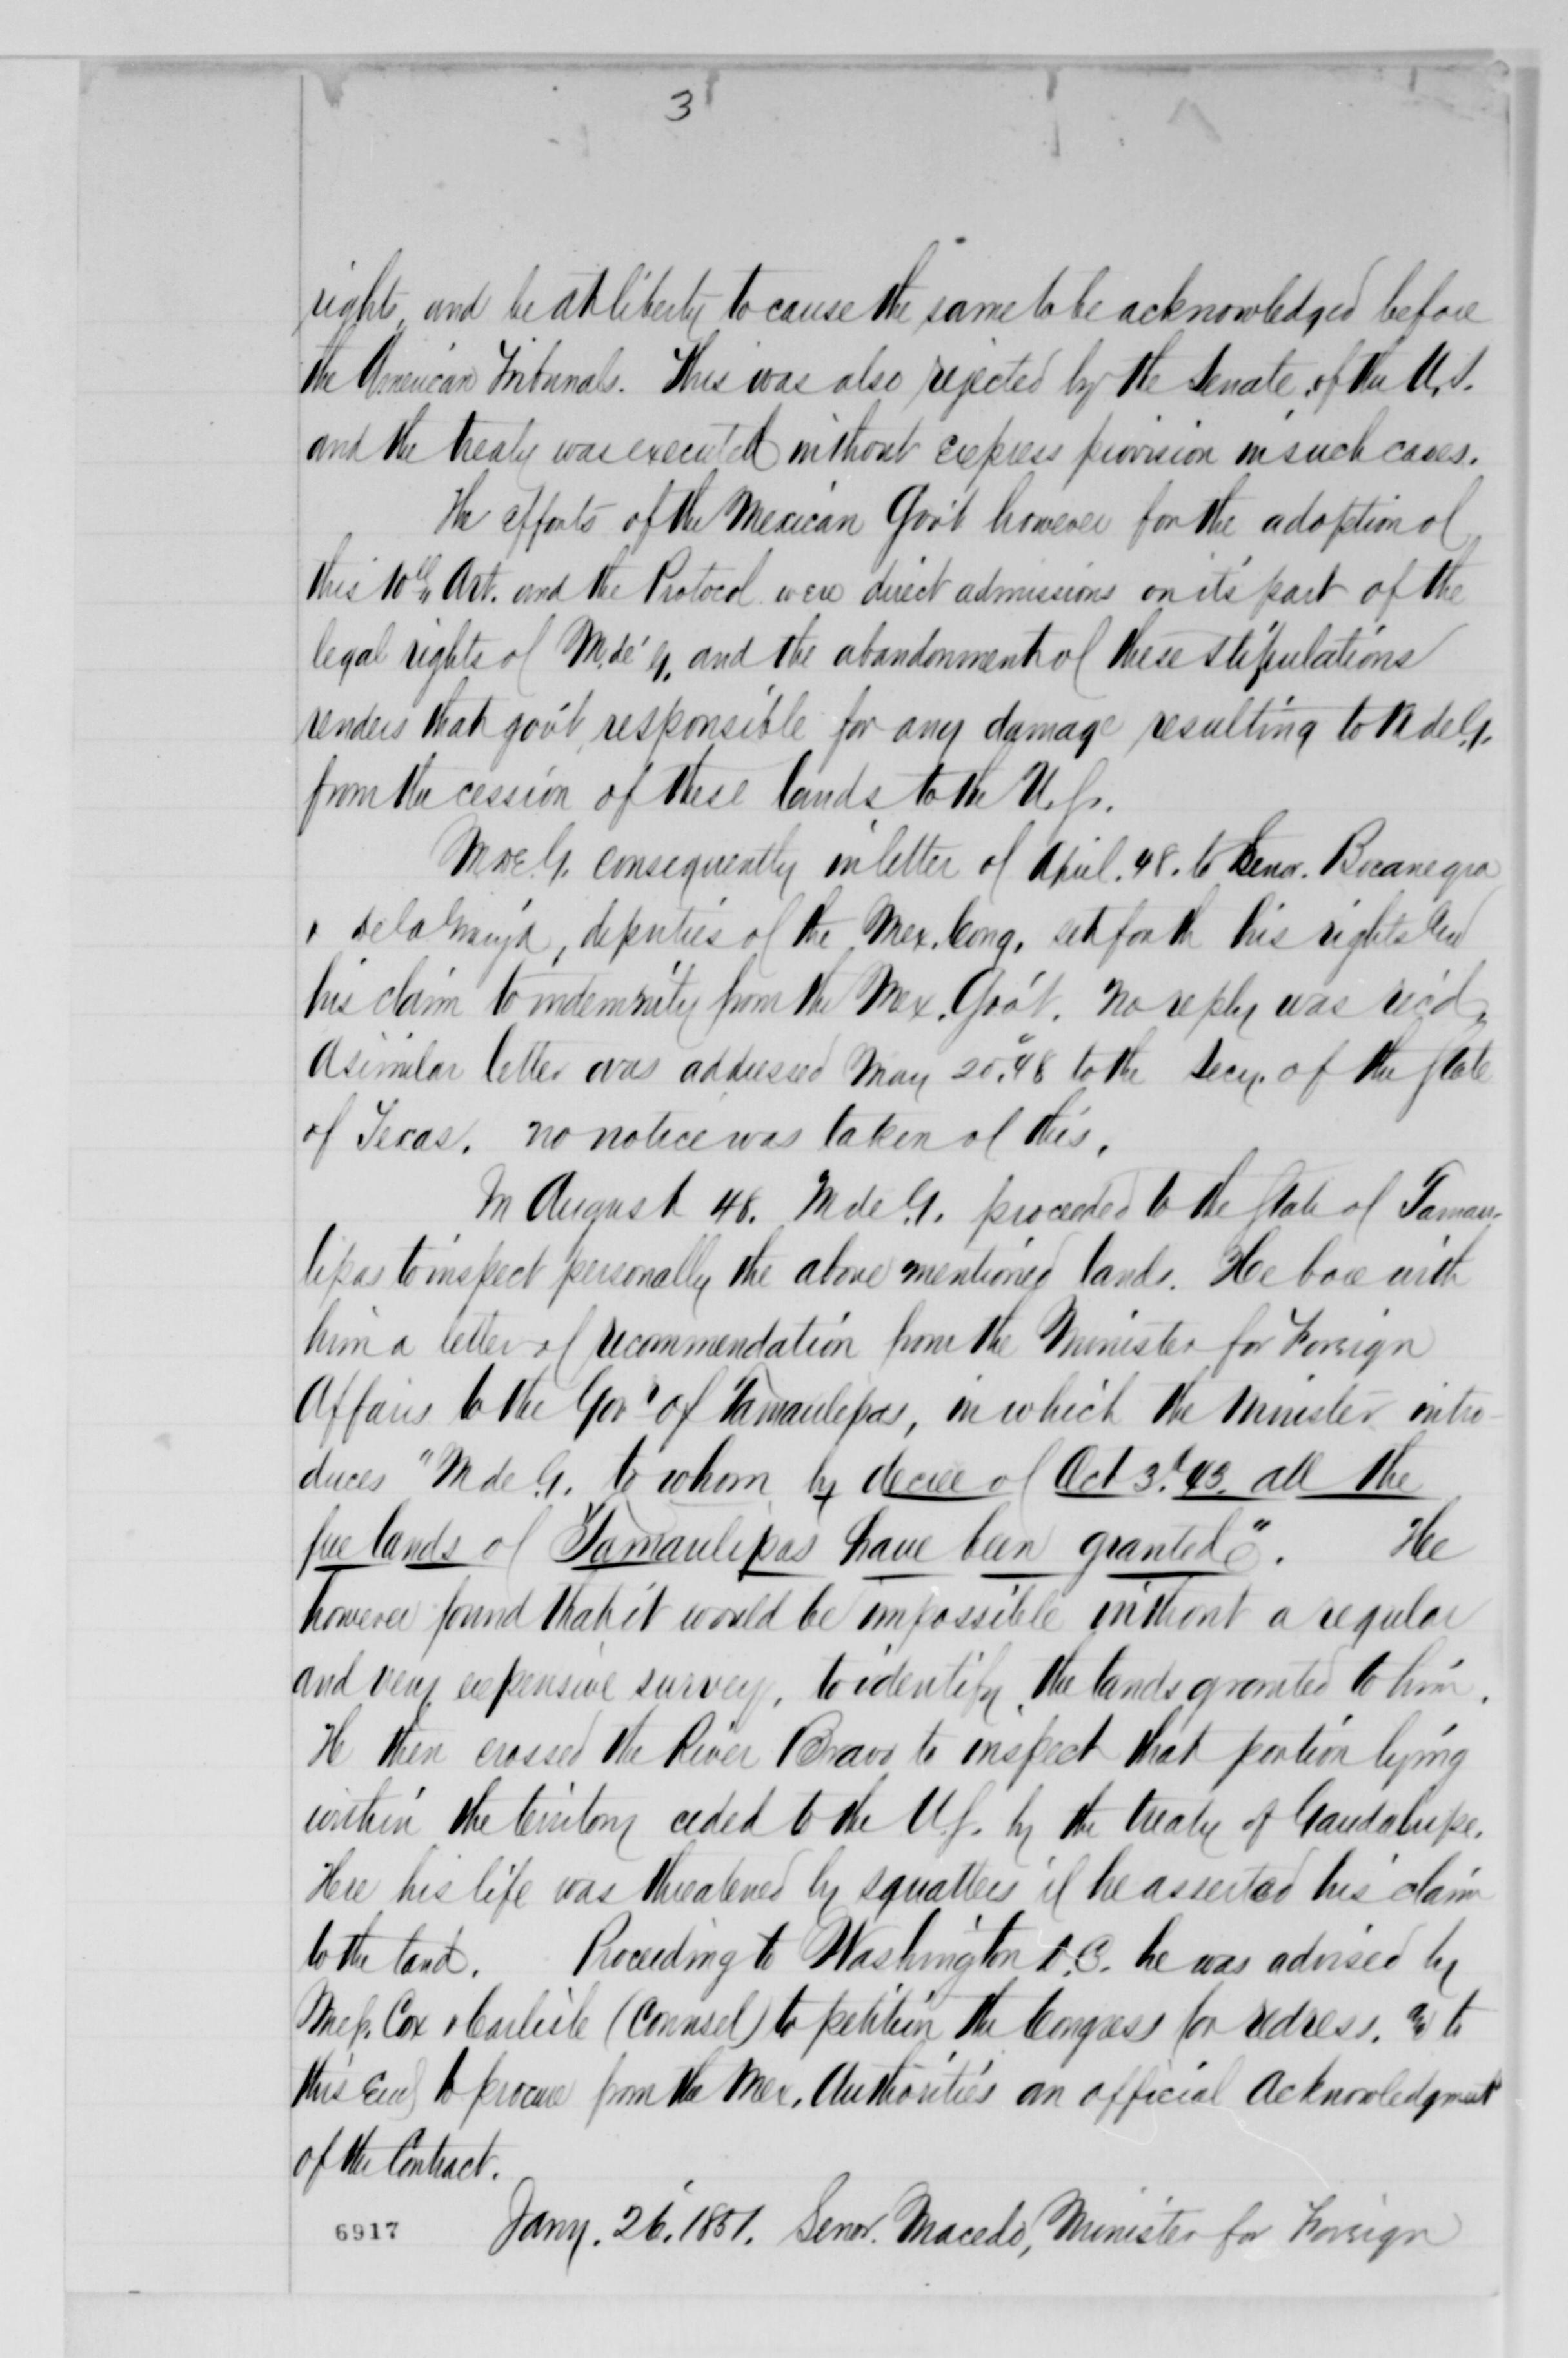 3
rights, and be at liberty to cause the same to be acknowledged before
the American Tribunals. This was also rejected by the Senate of the U.S.
and the treaty was executed without express provision in such cases.
The efforts of the Mexican Gov't however for the adoption of
this 10th Art. and the Protocol were direct admissions on it's part of the
legal rights of M. de G. and the abandonment of these stipulations
renders that gov't responsible for any damage resulting to M de G.
from the cession of these lands to the U.S.
M de G. consequently in letter of April. 48. to Senor. Bocanegra
dela, deputies of the Mex. Cong. set forth his rights and
his claim to indemnity from the Mex. Gov't. No reply was rec'd,
A similar letter was addressed May 20. 48 to the Secy. of the State
of Texas. no notice was taken of this.
In August 48. M de G. proceeded to the State of Tamau-
lipas to inspect personally the above mentioned lands. He bore with
him a letter of recommendation from the Minister for Foreign
Affairs to the Gov'r of Tamaulipas, in which the Minister intro-
duces "M de G. to whom by decree of Oct 3d. 43. all the
free lands of Tamaulipas have been granted". He
however found that it would be impossible without a regular
and very expensive survey, to identify the lands granted to him.
He then crossed the River Bravo to inspect that portion lying
within the territory ceded to the U.S. by the treaty of Gaudalupe.
Here his life was threatened by squatters if he asserted his claim
to the land. Proceeding to Washington D.C. he was advised by
Mess. Cox & Carlisle (Counsel) to petition the Congress for redress. & to
this end to procure from the Mex. Authorities an official Acknowledgment
of the Contract.
6917 Jany. 26. 1851. Senor. Macedo, Minister for Foreign